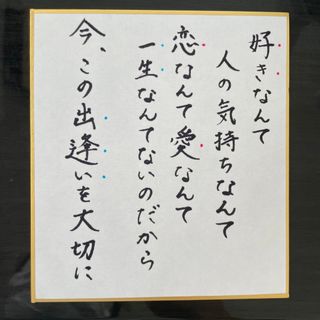 好きなんて
人の気持ちなんて
恋なんて愛なんて
一生なんてないのだから
今、この出逢いを大切に